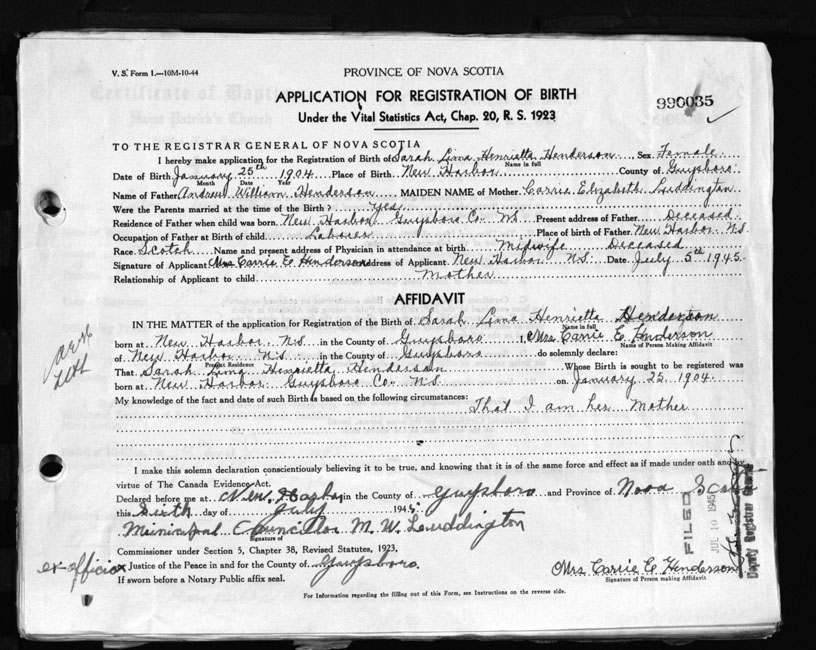 V. S. Form 1.—10M-10-44
PROVINCE OF NOVA SCOTIA
APPLICATION FOR REGISTRATION OF BIRTH
990035
Under the Vital Statistics Act, Chap. 20, R. S. 1923
TO THE REGISTRAR GENERAL OF NOVA SCOTIA
I hereby make application for the Registration of Birth of Sarah Lima Henrietta Henderson, Sex Female
Name in full
Date of Birth January 25th 1904 Place of Birth New Harbor County of Guysboro
Month Date Year
Name of Father Andrew William Henderson MAIDEN NAME of Mother Carrie Elizabeth Luddington
Were the Parents married at the time of the Birth? yes
Residence of Father when child was born New Harbor Guysboro Co NS Present address of Father Deceased
Occupation of Father at Birth of child Laborer Place of birth of Father New Harbor N.S.
Race Scotch Name and present address of Physician in attendance at birth Midwife Deceased
Signature of Applicant Mrs Carrie E Henderson address of Applicant New Harbor NS. Date July 5th 1945
Relationship of Applicant to child Mother
AFFIDAVIT
IN THE MATTER of the application for Registration of the Birth of Sarah Lima Henrietta Henderson
Name in full
born at New Harbor, N.S in the County of Guysboro, Mrs. Carrie E Henderson
Name of Person Making Affidavit
of New Harbor N.S. in the County of Guysboro do solemnly declare:
Present Residence
That Sarah Lima Henrietta Henderson Whose Birth is sought to be registered was
born at New Harbor Guysboro Co. N.S. on January 25 1904
My knowledge of the fact and date of such Birth is based on the following circumstances:
That I am her Mother
I make this solemn declaration conscientiously believing it to be true, and knowing that it is of the same force and effect as if made under oath and by
virtue of The Canada Evidence Act.
Declared before me at New Harbor in the County of Guysboro and Province of Nova Scotia
this Sixth day of July 1945
Municipal Councillor M. W. Luddington
Signature of
Commissioner under Section 5, Chapter 38, Revised Statutes, 1923,
ex-officio Justice of the Peace in and for the County of Guysboro
If sworn before a Notary Public affix seal.
Mrs Carrie E Henderson
Signature of Person making Affidavit
For Information regarding the filling out of this Form, see Instructions on the reverse side.
FILED
JUL 10 1945
Deputy Registrar General